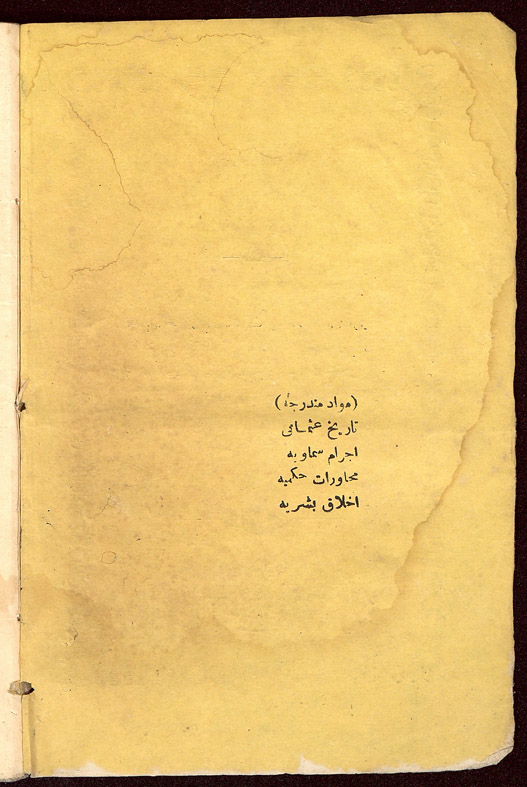 (مواد مندرجه)
تاريخ عثمانى
اجرام سماويه
محاورات حكميه
اخلاق بشريه